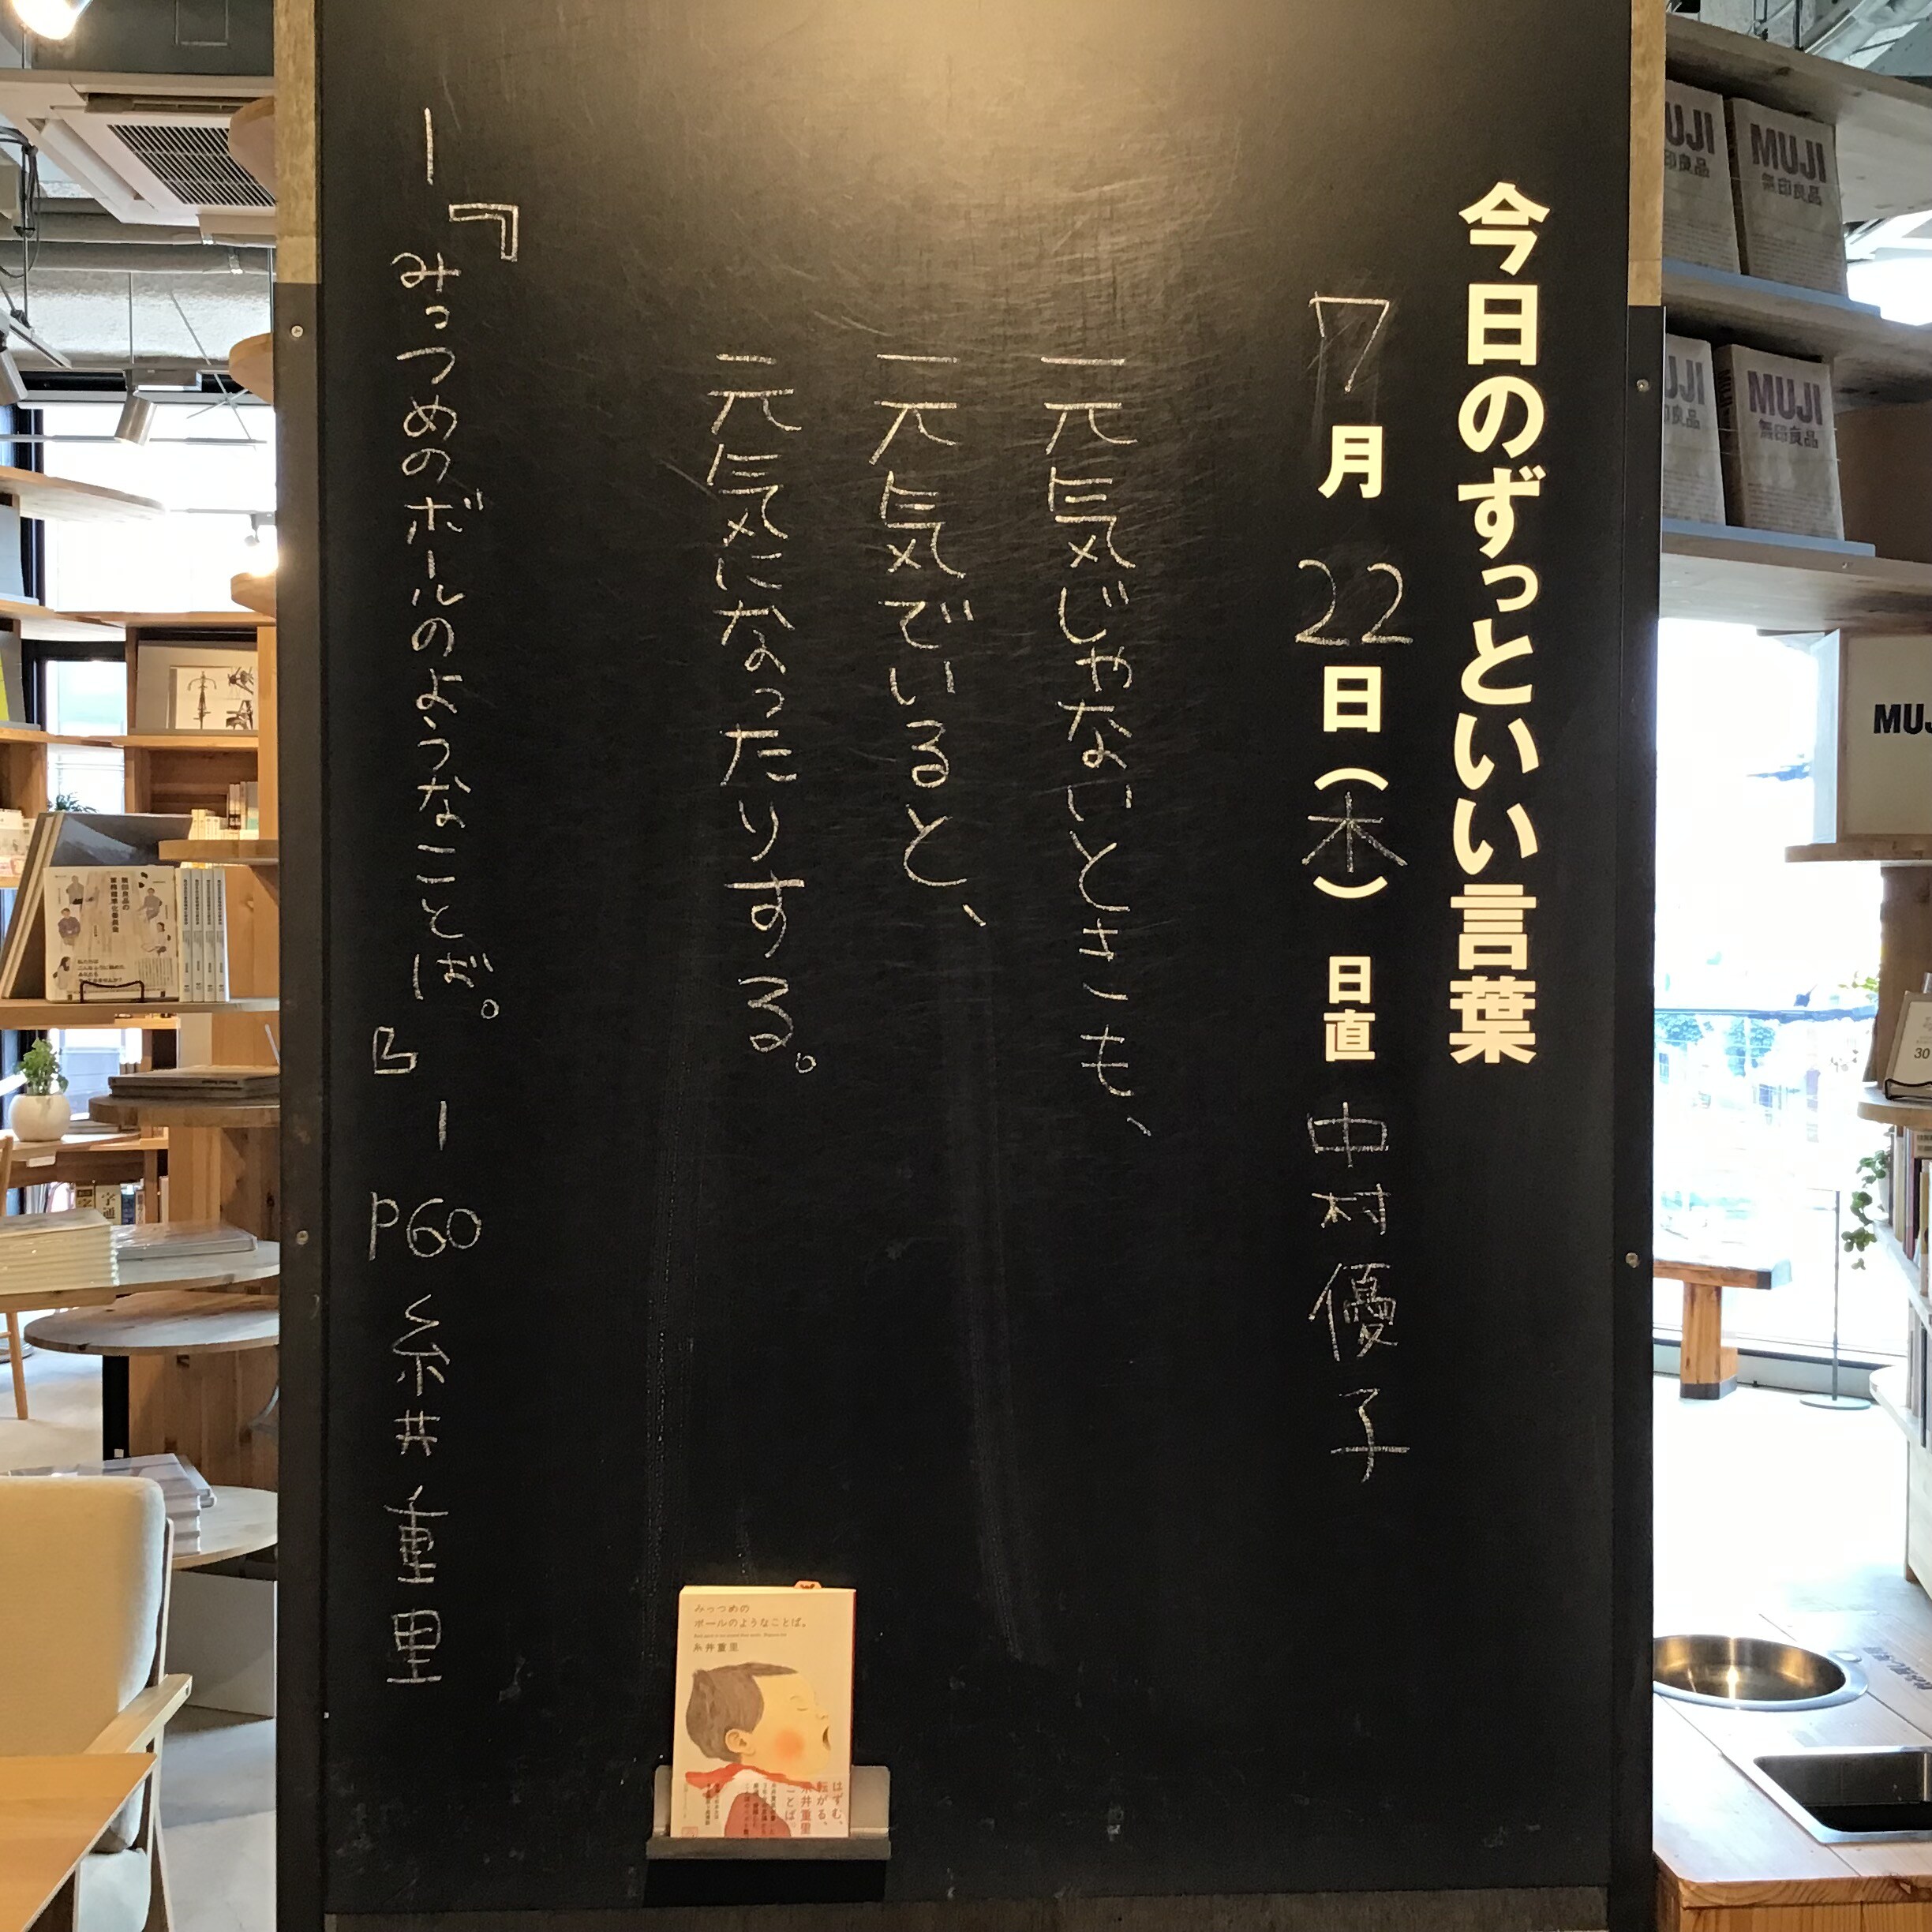 今日のずっといい言葉
7月22日(木) 日直 中村優子
元気じゃないときも、
元気でいると、
元気になったりする。
ー『みっつめのボールのようなことば。』ー P60 糸井重里
みっつめの
ボールのようなことば。
糸井重里
はずむ、
転がる、
糸井重里
ことば。
MUJI
無印良品
MUJI
無印良品
MUJI
30